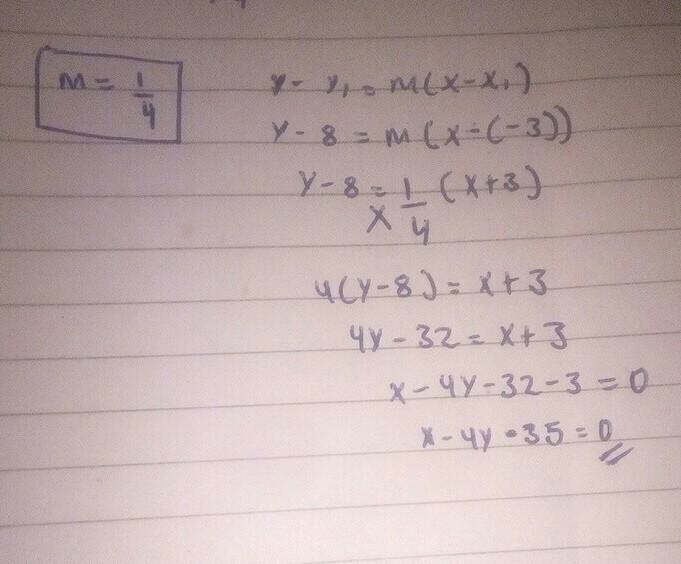 m = 1/4
y - y₁ = m(x - x₁)
y - 8 = m(x - (-3))
y - 8 = 1/4 (x + 3)
4(y - 8) = x + 3
4y - 32 = x + 3
x - 4y - 32 - 3 = 0
x - 4y - 35 = 0